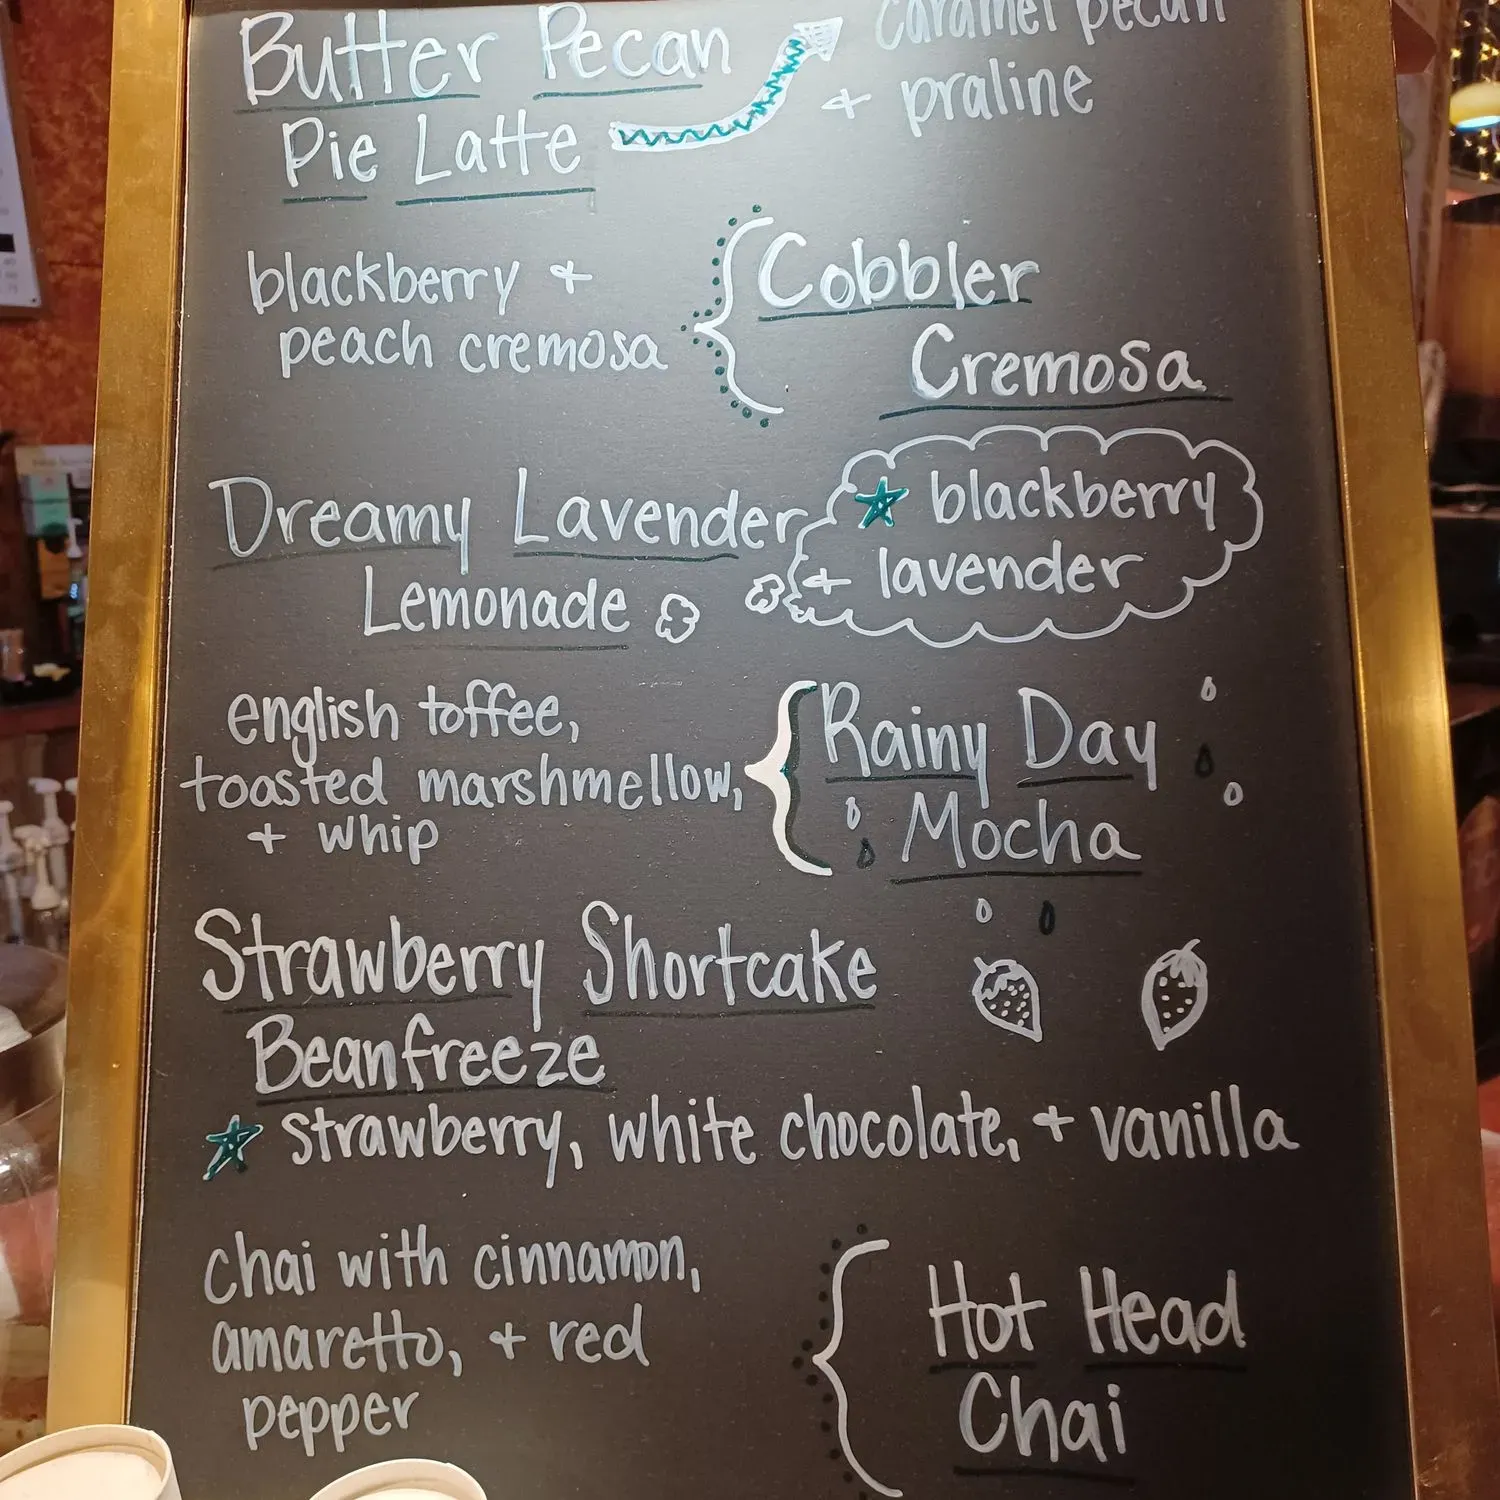 Butter Pecan
Pie Latte
caramel pecan
+ praline
blackberry +
peach cremosa
Cobbler
Cremosa
Dreamy Lavender
Lemonade
blackberry
+ lavender
english toffee,
toasted marshmellow,
+ whip
Rainy Day
Mocha
Strawberry Shortcake
Beanfreeze
strawberry, white chocolate, + vanilla
chai with cinnamon,
amaretto, + red
pepper
Hot Head
Chai